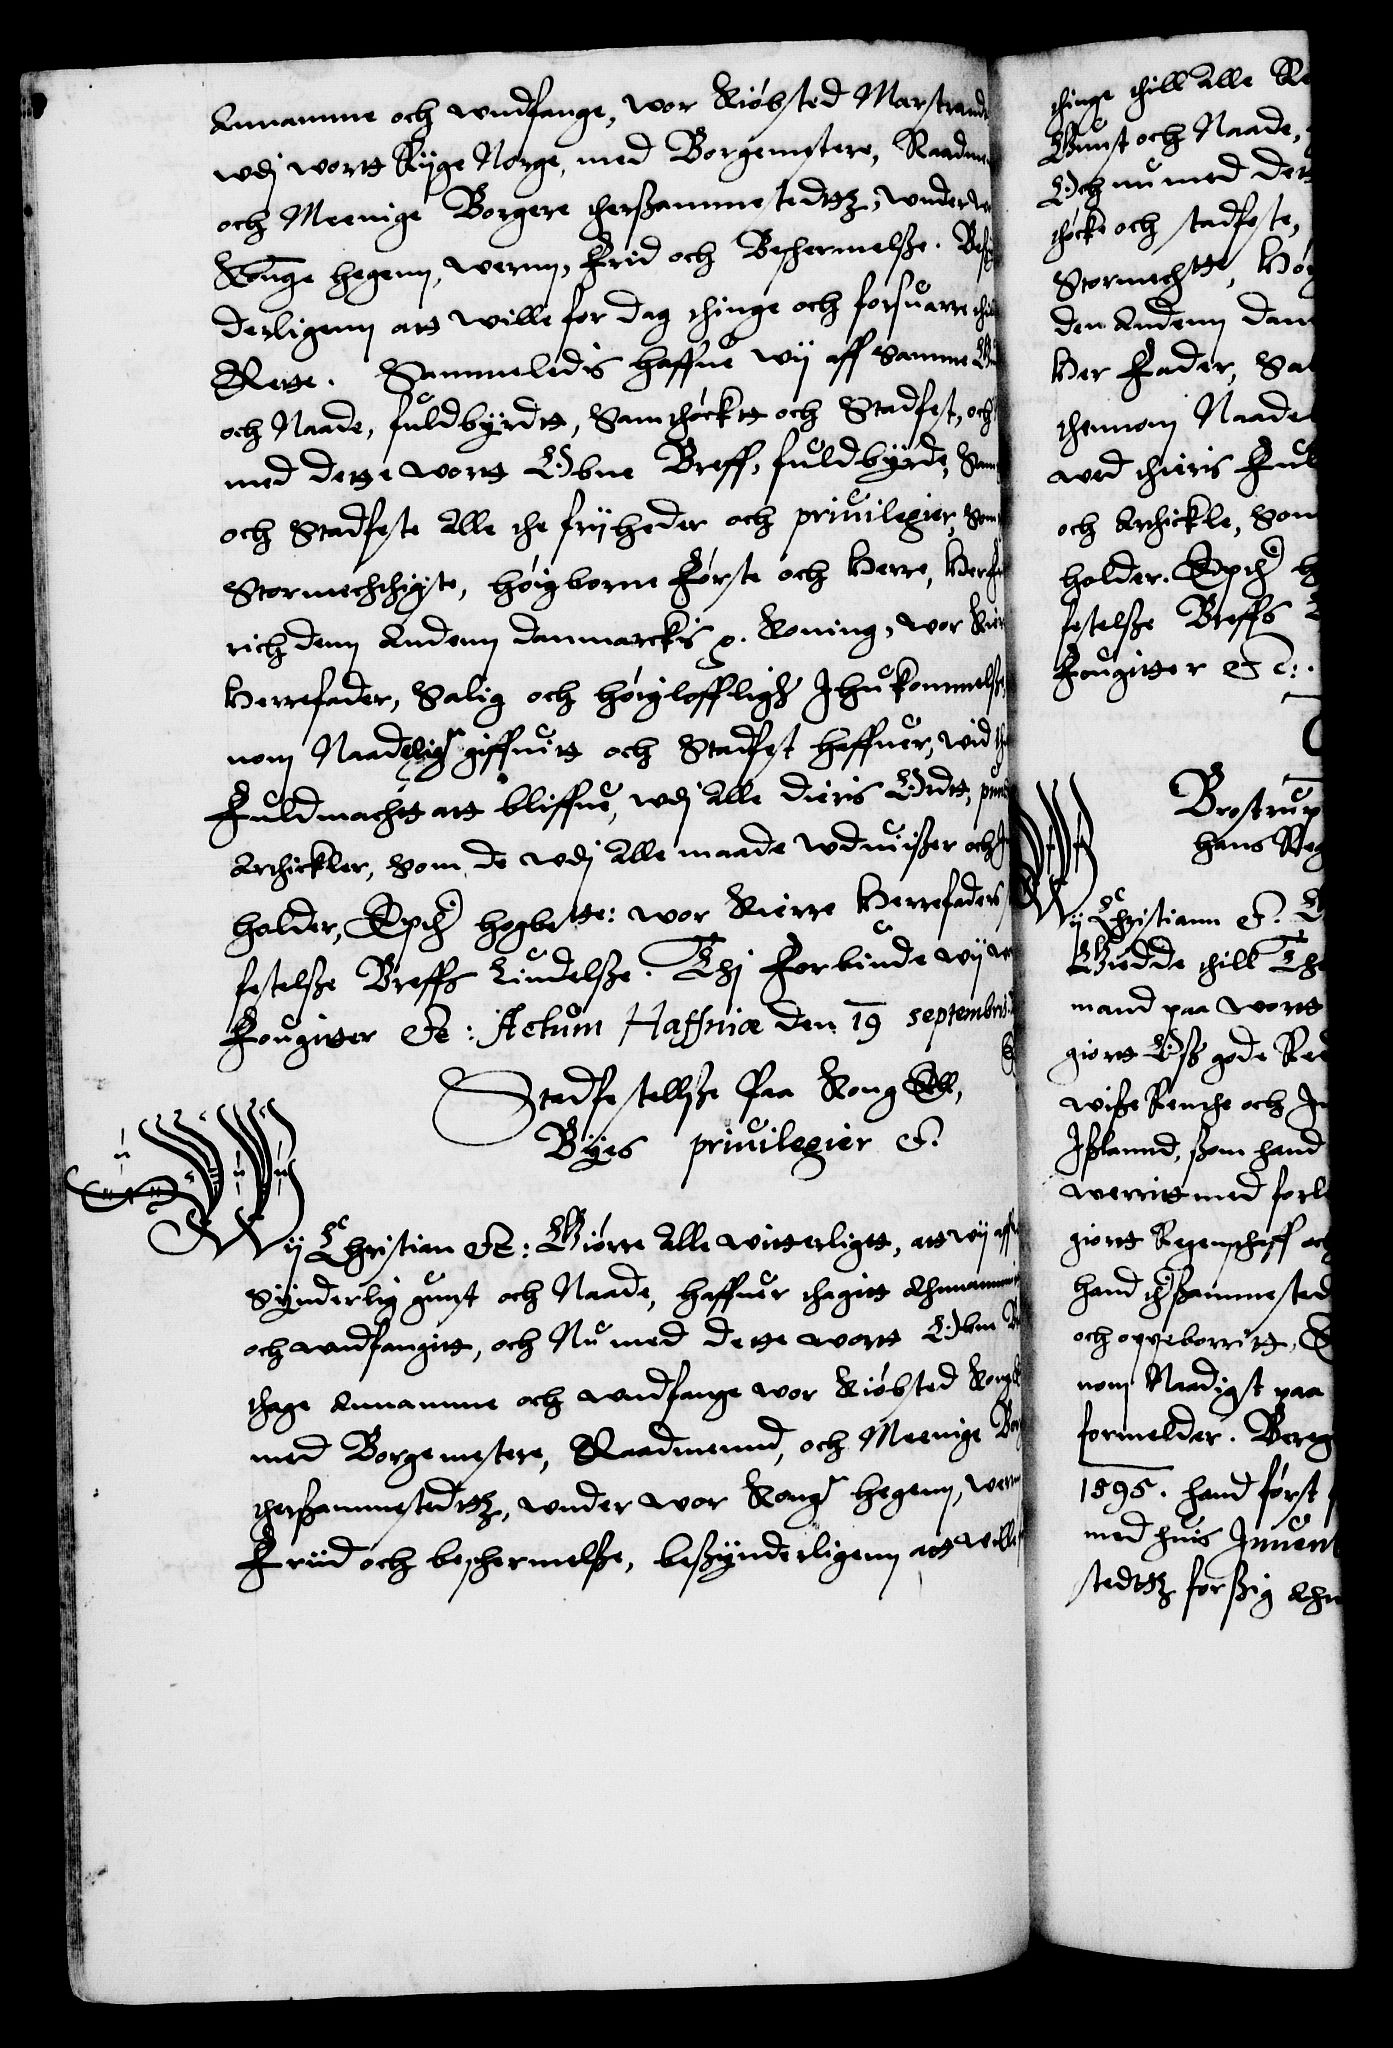 Annamme och undfange, wor Kiøbsted Marstrand
udj wortt Rijge Norge, med Borgemstere, Raadm
och Meenige Borgere therßammestedttz, under
Konge hegenn, wernn, Frid och Beschermelße. Beß
derligenn att wille for dag thinge och forsuarre
Rette. Sammeledis haffue wij aff Samme
och Naade, fuldbyrdtt, Samthøcktt och Stadfest, och
med dette wortt Obne Breff, fuldbyrde, Sam
och Stadfeste Alle the frijheder och priuilegier, som
Stormechthigste, høigborne Første och Herre, Her
rich denn Andenn Danmarckis p. Koning, wor Kier
Herrefader, Salig och høigloffligh Ihukommelße
nom Naadelig giffuitt och Stadfest haffuer, wid
Fuldmachtt att bliffue, udj Alle dieris Ordtt,
Arthickler, som de udj Alle maade uduißer och
holder, Epther hogbette: wor Kierre Herrefaders
festelße Breffs Liudelße. Thj Forbinde wij
Fougitter Etc: Actum Haffniæ den 19 septembris
Stadfestellße paa Kong Ell,
Byes priuilegier Etc.
Wij Christian Etc: Giørre Alle witterligtt, att wij aff
Synderlig gunst och Naade, haffuer thagitt Annamm
och undfangitt, och Nu med dette wortt Obne
thage Annamme och undfange wor Kiøbsted Kong
med Borgemestere, Raadmennd, och Meenige Bor
therßammestedttz, under wor Kong hegenn, wern
Friid och beschermelße, beßynderligenn att wille
thinge thill Alle Re
Gunst och Naade,
Och nu med dett
thøcke och stadfeste,
Stormechtte, Høy
den Andenn Dan
Her Fader, Sal
thennom Naade
wed thieris Ful
och Arthickle, som
holder. Epther h
festelße Breffs
Fougitter Etc:.
Brostrup
hans Reg
Wij Christiann Etc. G
Giedde thill The
mand paa wortt
giortt Oß gode Re
wiße Renthe och In
Ißlannd, ßom hand
werritt med forl
giortt Regenschaff och
hand therßammested
och oppeborritt,
nom Naadigst paa
formelder. Bereg
1595. hand først
med huis Inuent
stedttz forßig